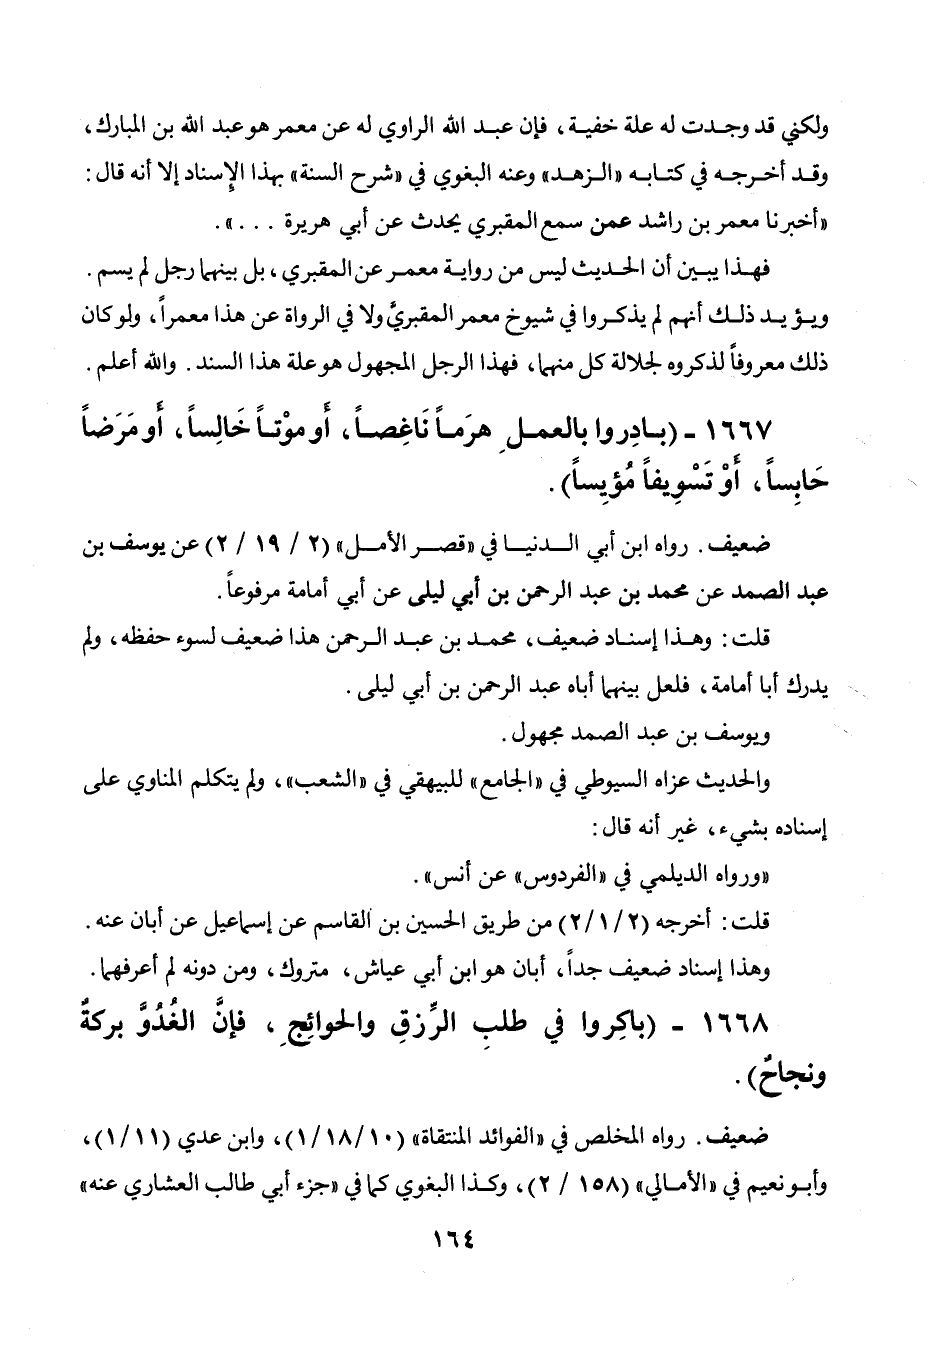 ولكني قد وجدت له علة خفية، فإن عبد الله الراوي له عن معمر هو عبد الله بن المبارك،
وقد أخرجه في كتابه «الزهد» وعنه البغوي في «شرح السنة» بهذا الإسناد إلا أنه قال:
«أخبرنا معمر بن راشد عمن سمع المقبري يحدث عن أبي هريرة . . .».
فهذا يبين أن الحديث ليس من رواية معمر عن المقبري، بل بينهما رجل لم يسم.
ويؤيد ذلك أنهم لم يذكروا في شيوخ معمر المقبريَّ ولا في الرواة عن هذا معمراً، ولو كان
ذلك معروفاً لذكروه لجلالة كل منهما، فهذا الرجل المجهول هو علة هذا السند. والله أعلم.
١٦٦٧ - (بادِروا بالعملِ هرَماً نَاغِصاً، أَو موْتاً خَالِساً، أَو مَرَضاً
حَابِساً، أَوْ تَسْوِيفاً مُؤيِساً).
ضعيف. رواه ابن أبي الدنيا في «قصر الأمل» (٢ / ١٩ / ٢) عن يوسف بن
عبد الصمد عن محمد بن عبد الرحمن بن أبي ليلى عن أبي أمامة مرفوعاً.
قلت: وهذا إسناد ضعيف، محمد بن عبد الرحمن هذا ضعيف لسوء حفظه، ولم
يدرك أبا أمامة، فلعل بينهما أباه عبد الرحمن بن أبي ليلى.
ويوسف بن عبد الصمد مجهول.
والحديث عزاه السيوطي في «الجامع» للبيهقي في «الشعب»، ولم يتكلم المناوي على
إسناده بشيء، غير أنه قال:
«ورواه الديلمي في «الفردوس» عن أنس».
قلت: أخرجه (٢/١/٢) من طريق الحسين بن القاسم عن إسماعيل عن أبان عنه.
وهذا إسناد ضعيف جداً، أبان هو ابن أبي عياش، متروك، ومن دونه لم أعرفهما.
١٦٦٨ - (باكِروا في طلبِ الرِّزقِ والحوائِجِ، فإنَّ الغُدُوَّ بركةٌ
ونجاحٌ).
ضعيف. رواه المخلص في «الفوائد المنتقاة» (١/١٨/١٠)، وابن عدي (١/١١)،
وأبو نعيم في «الأمالي» (١٥٨ / ٢)، وكذا البغوي كما في «جزء أبي طالب العشاري عنه»
١٦٤